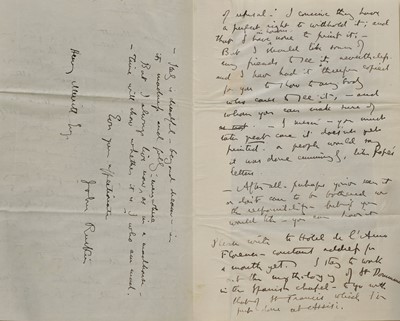 of refusal. I conceive they have
a perfect right to withhold it; and
that I have none to print it; -
But I should like some of
my friends to see it nevertheless
and I have had it therefore copied
for you to show to any body
who cares to see it, - and
whom you can make sure of
- I mean - you must
take great care it doesn't get
printed - or people would say
it was done cunningly, like Pope's
letters
- After all - perhaps you
or don't care to be bothered with
the responsibility - but if you
would like - you can have it
write to Hotel de l'Arno
Florence - constant address for
a month yet. I stay to work
at the mythology of St Dominic
in the Spanish chapel - to go with
that of St Francis which I've
just done at Assisi.
- is dreadful - beyond dream - in
its madness and
But I always live now, as in a madhouse -
- Time will show whether it is I who am mad.
Ever your affectionate
John Ruskin
Henry Esq.